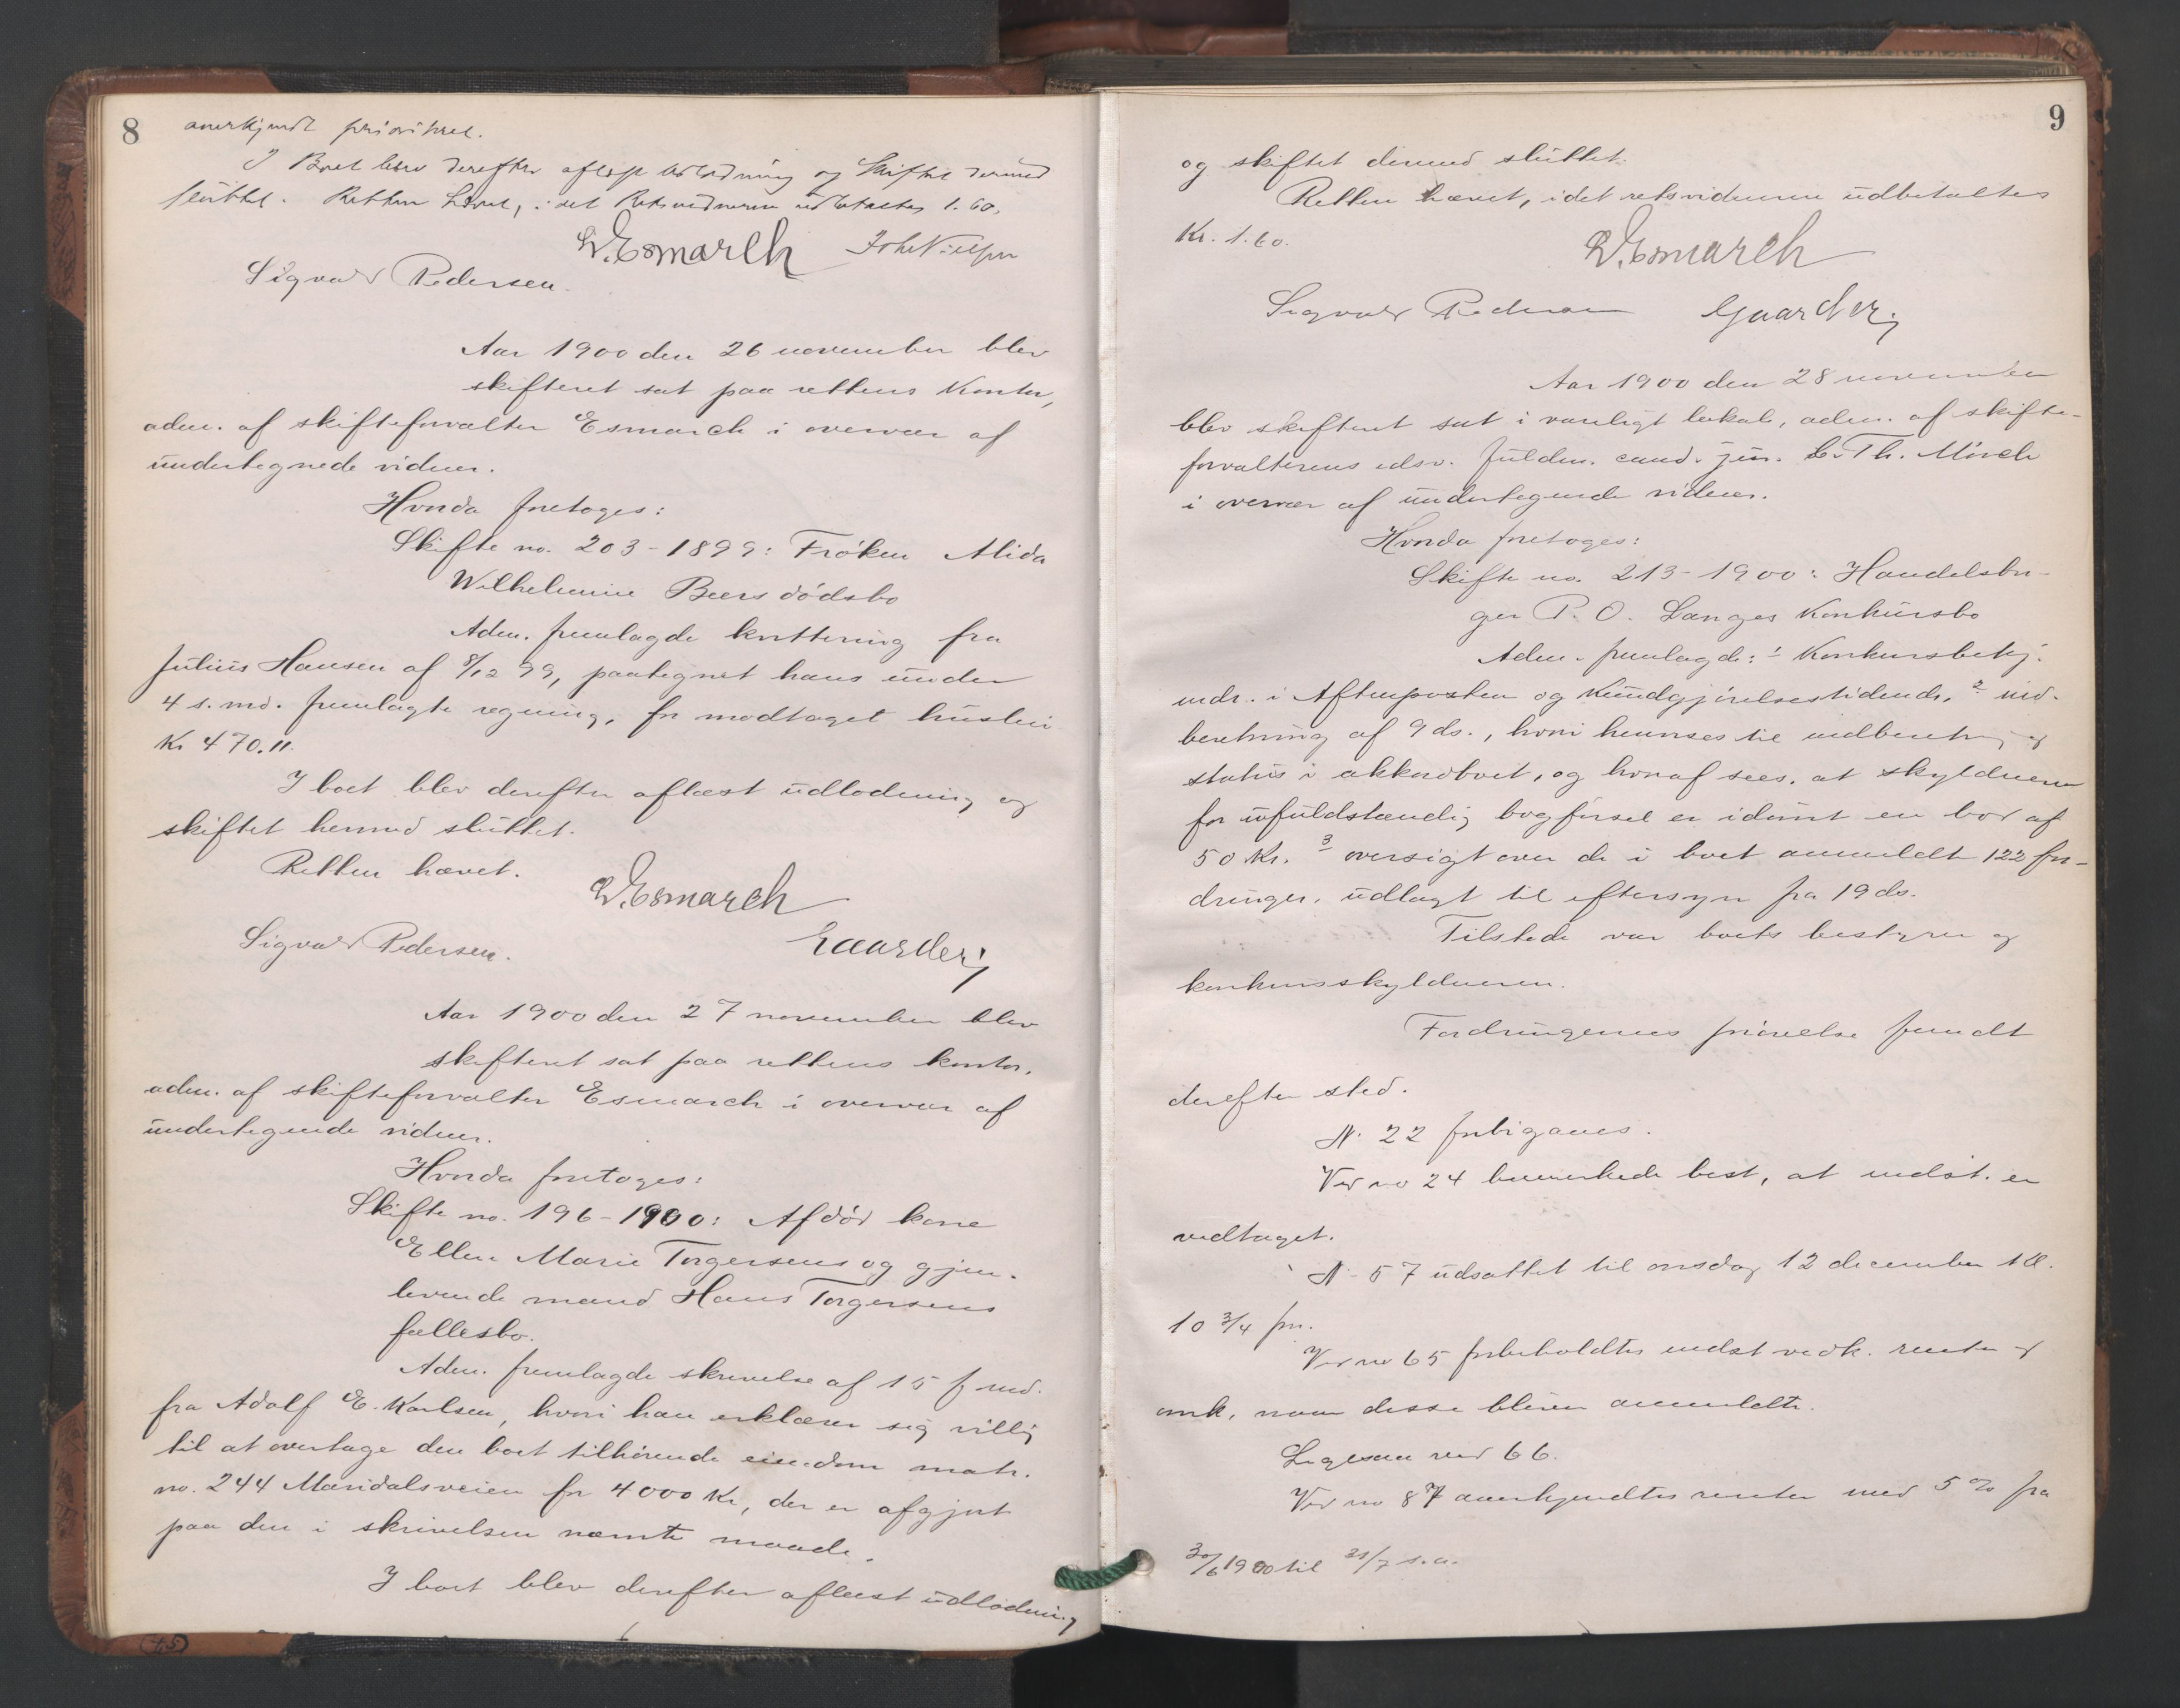 8
anerkjendt prioritet.
I Boet blev derefter aflæst Udlodning og Skiftet dermed
sluttet. Retten hævet, idet Retsvidnerne udbetaltes 1.60.
L. Esmarch Joh. Nielsen
Sigvald Pedersen.
Aar 1900 den 26 november blev
skifteret sat paa rettens Kontor,
adm. af skifteforvalter Esmarch i overvær af
undertegnede vidner.
Hvorda foretoges:
Skifte no. 203-1899: Frøken Alida
Wilhelmine Beers dødsbo
Adm. fremlagde kvittering fra
Julius Hansen af 8/12 99, paategnet hans under
4 s. md. fremlagte regning, for modtaget husleie
Kr 470.11.
I boet blev derefter aflæst udlodning og
skiftet hermed sluttet.
Retten hævet.
L. Esmarch
Sigvald Pedersen. Gaarder j
Aar 1900 den 27 november blev
skifteret sat paa rettens kontor,
adm. af skifteforvalter Esmarch i overvær af
undertegnede vidner.
Hvorda foretoges:
Skifte no. 196-1900: Afdød kone
Ellen Marie Torgersens og gjen-
levende mand Hans Torgersens
fællesbo.
Adm. fremlagde skrivelse af 15 f. md.
fra Adolf E. Karlsen, hvori han erklærer sig villig
til at overtage den boet tilhørende eiendom matr.
no. 244 Maridalsveien for 4000 Kr, der er afgjort
paa den i skrivelsen nævnte maade.
I boet blev derefter aflæst udlodning
9
og skiftet dermed sluttet.
Retten hævet, idet retsvidnerne udbetaltes
Kr. 1.60.
L. Esmarch
Sigvald Pedersen Gaarder j
Aar 1900 den 28 november
blev skifteret sat i vanligt lokale, adm. af skifte-
forvalterens edsv. fuldm. cand. jur. C. Th. Mörch
i overvær af undertegnede vidner.
Hvorda foretoges:
Skifte no. 213-1900: Handelsbor-
ger P. O. Langes Konkursbo
Adm. fremlagde: 1 Konkursbekj.
indr. i Aftenposten og Kundgjørelsestidende, 2 ind-
beretning af 9 ds., hvori henvises til indberetn. og
status i akkordboet, og hvoraf sees, at skyldneren
for ufuldstændig bogførsel er idømt en bod af
50 Kr. 3 oversigt over de i boet anmeldte 122 for-
dringer, udlagt til eftersyn fra 19 ds.
Tilstede var boets bestyrer og
konkursskyldneren.
Fordringernes prøvelse fandt
derefter sted.
N. 22 forbigaaes.
Ved no 24 bemerkede best, at indst. er
vedtaget.
N. 57 udsattet til onsdag 12 december Kl.
10 3/4 fm.
Ved no 65 forbeholdtes indst vedk. renter og
omk, naar disse bliver anmeldte.
Ligesaa ved 66.
Ved no 87 anerkjendtes renter med 5 % fra
30/6 1900 til 31/7 s.a.